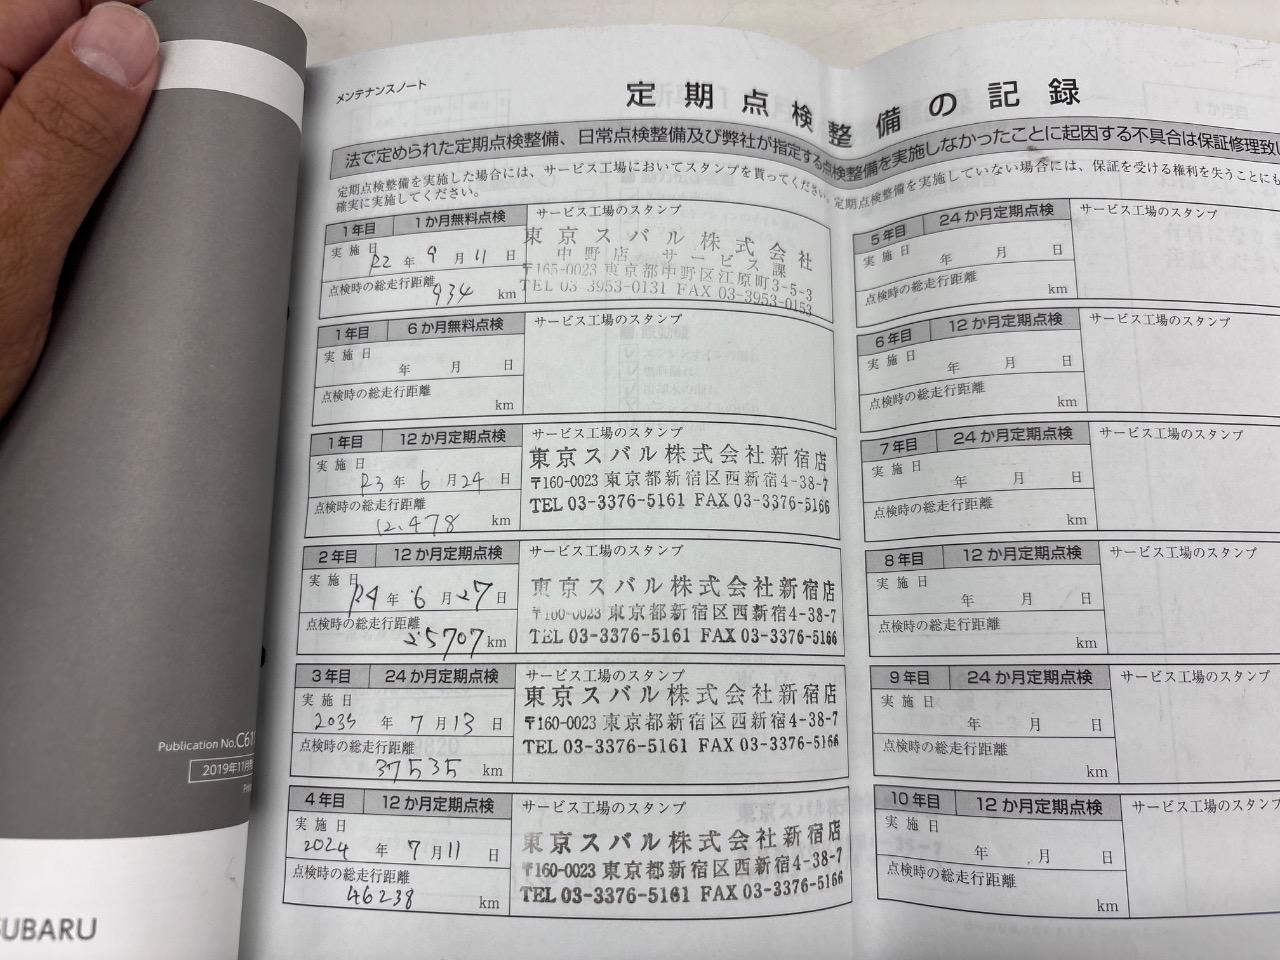 メンテナンスノート
定期点検整備の記録
法で定められた定期点検整備、日常点検整備及び弊社が指定する点検整備を実施しなかったことに起因する不具合は保証修理致し
定期点検整備を実施した場合には、サービス工場においてスタンプを貰ってください。定期点検整備を実施していない場合には、保証を受ける権利を失うことにも
確実に実施してください。
1年目 1か月無料点検 サービス工場のスタンプ
実施日
R2年9月11日
点検時の総走行距離
934 km
東京スバル株式会社
中野店 サービス課
〒165-0023 東京都中野区江原町3-5-3
TEL 03-3953-0131 FAX 03-3953-0153
1年目 6か月無料点検 サービス工場のスタンプ
実施日
年 月 日
点検時の総走行距離
km
1年目 12か月定期点検 サービス工場のスタンプ
実施日
R3年6月24日
点検時の総走行距離
12,478 km
東京スバル株式会社新宿店
〒160-0023 東京都新宿区西新宿4-38-7
TEL 03-3376-5161 FAX 03-3376-5166
2年目 12か月定期点検 サービス工場のスタンプ
実施日
R4年6月27日
点検時の総走行距離
25707 km
東京スバル株式会社新宿店
〒160-0023 東京都新宿区西新宿4-38-7
TEL 03-3376-5161 FAX 03-3376-5166
3年目 24か月定期点検 サービス工場のスタンプ
実施日
2035年7月13日
点検時の総走行距離
37535 km
東京スバル株式会社新宿店
〒160-0023 東京都新宿区西新宿4-38-7
TEL 03-3376-5161 FAX 03-3376-5166
4年目 12か月定期点検 サービス工場のスタンプ
実施日
2024年7月11日
点検時の総走行距離
46238 km
東京スバル株式会社新宿店
〒160-0023 東京都新宿区西新宿4-38-7
TEL 03-3376-5161 FAX 03-3376-5166
5年目 24か月定期点検 サービス工場のスタンプ
実施日
年 月 日
点検時の総走行距離
km
6年目 12か月定期点検 サービス工場のスタンプ
実施日
年 月 日
点検時の総走行距離
km
7年目 24か月定期点検 サービス工場のスタンプ
実施日
年 月 日
点検時の総走行距離
km
8年目 12か月定期点検 サービス工場のスタンプ
実施日
年 月 日
点検時の総走行距離
km
9年目 24か月定期点検 サービス工場のスタンプ
実施日
年 月 日
点検時の総走行距離
km
10年目 12か月定期点検 サービス工場のスタンプ
実施日
年 月 日
点検時の総走行距離
km
Publication No.C61
2019年11月
SUBARU